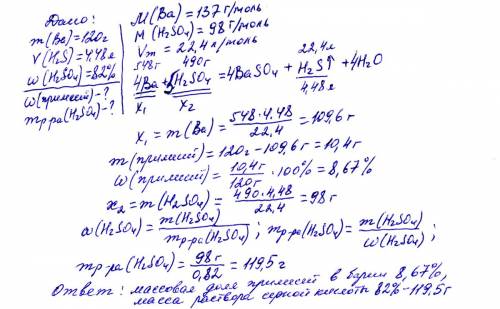 Дано:
m(Ba)=120г
V(H₂S)=4,48л
ω(H₂SO₄)=82%
ω(примесей)-?
mр-ра(H₂SO₄)-?
M(Ba)=137г/моль
M(H₂SO₄)=98г/моль
Vm=22,4л/моль
548г 490г 22,4л
4Ba+5H₂SO₄=4BaSO₄+H₂S↑+4H₂O
x₁ x₂ 4,48л
x₁=m(Ba)=548·4,48/22,4=109,6г
m(примесей)=120г-109,6г=10,4г
ω(примесей)=10,4г/120г·100%=8,67%
x₂=m(H₂SO₄)=490·4,48/22,4=98г
ω(H₂SO₄)=m(H₂SO₄)/mр-ра(H₂SO₄); mр-ра(H₂SO₄)=m(H₂SO₄)/ω(H₂SO₄);
mр-ра(H₂SO₄)=98г/0,82=119,5г
Ответ: массовая доля примесей в барии 8,67%,
масса раствора серной кислоты 82%-119,5г